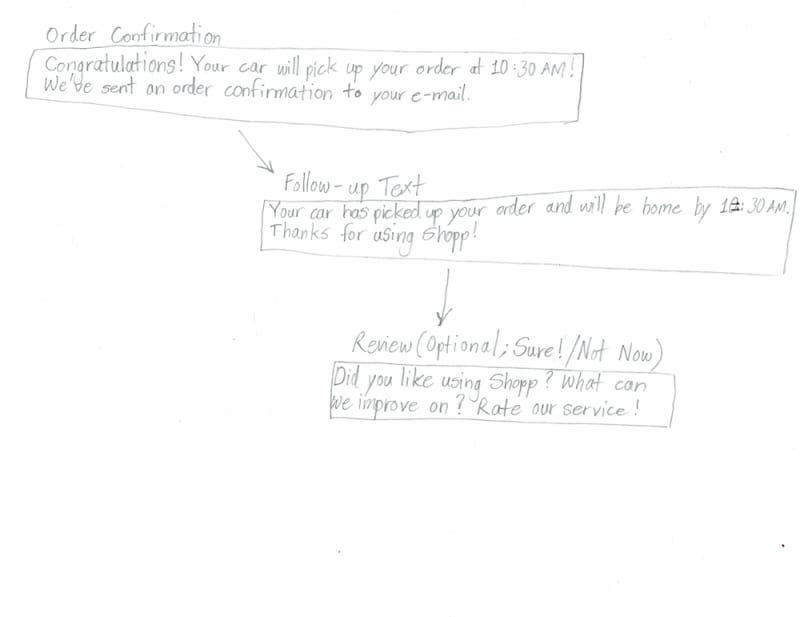 Order Confirmation
Congratulations! Your car will pick up your order at 10:30 AM!
We've sent an order confirmation to your e-mail.
Follow-up Text
Your car has picked up your order and will be home by 12:30 AM.
Thanks for using Shopp!
Review (Optional; Sure!/Not Now)
Did you like using Shopp? What can
we improve on? Rate our service!